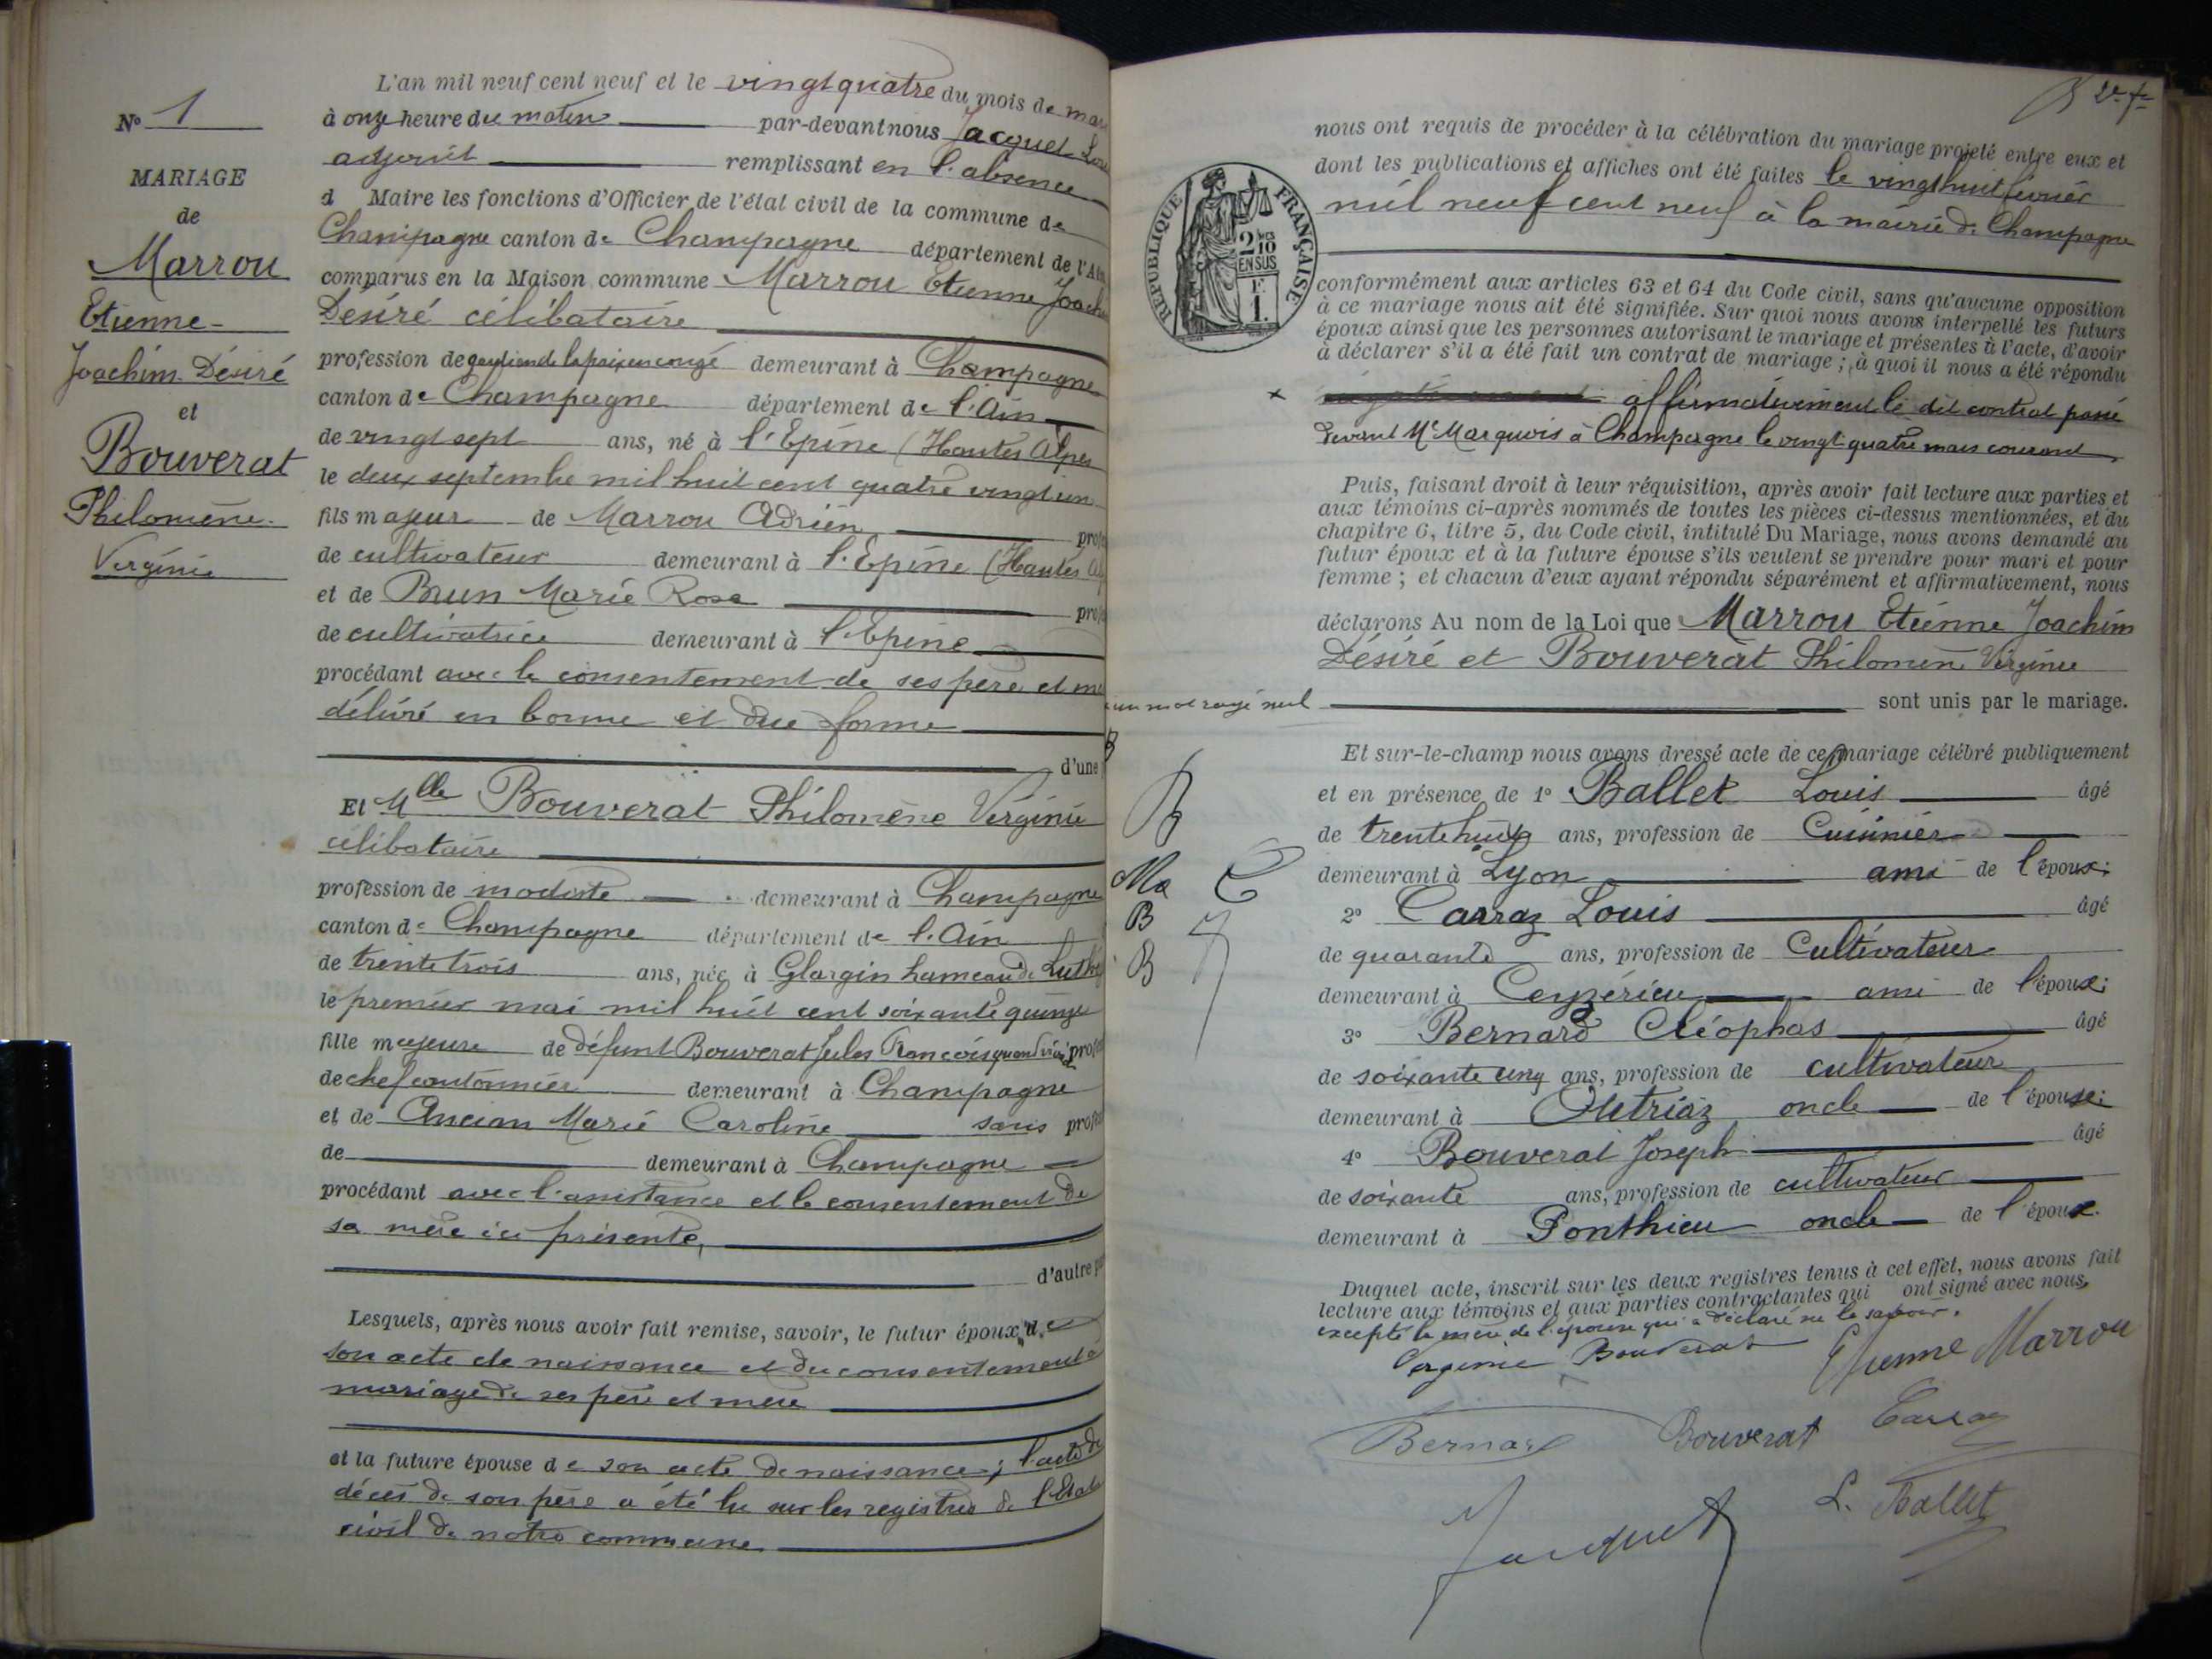 L'an mil neuf cent neuf et le vingt quatre du mois de mars
à onze heure du matin par-devant nous Jacquet Louis
adjoint remplissant en l'absence
d Maire les fonctions d'Officier de l'état civil de la commune de
Champagne canton de Champagne département de l'Ain
comparus en la Maison commune Marrou Etienne Joachi
Désiré célibataire
profession de gardien de la paix en congé demeurant à Champagne
canton de Champagne département de l'Ain
de vingt sept ans, né à l'Epine (Hautes Alpes
le deux septembre mil huit cent quatre vingt un
fils majeur de Marrou Adrien profe
de cultivateur demeurant à l'Epine (Hautes Alp
et de Brun Marie Rose profe
de cultivatrice demeurant à l'Epine
procédant avec le consentement de ses père et mè
délivré en bonne et due forme
d'une p
Et Mlle Bouverat Philomène Virginie
célibataire
profession de modiste demeurant à Champagne
canton de Champagne département de l'Ain
de trente trois ans, née à Glargin hameau de Luthé
le premier mai mil huit cent soixante quinze
fille majeure de défunt Bouverat Jules François quand vivait profes
de chef cantonnier demeurant à Champagne
et de Ancian Marie Caroline sans profes
de demeurant à Champagne
procédant avec l'assistance et le consentement de
sa mère ici présente,
d'autre par
Lesquels, après nous avoir fait remise, savoir, le futur époux, de
son acte de naissance et du consentement à
mariage de ses père et mère
et la future épouse de son acte de naissance; l'acte de
décès de son père a été lu sur les registres de l'Etat
civil de notre commune
No 1
MARIAGE
de
Marrou
Etienne-
Joachim Désiré
et
Bouverat
Philomène
Virginie
2e fe
nous ont requis de procéder à la célébration du mariage projeté entre eux et
dont les publications et affiches ont été faites le vingt huit février
mil neuf cent neuf à la mairie de Champagne
RÉPUBLIQUE FRANÇAISE
2/10
EN SUS
F.
1.
conformément aux articles 63 et 64 du Code civil, sans qu'aucune opposition
à ce mariage nous ait été signifiée. Sur quoi nous avons interpellé les futurs
époux ainsi que les personnes autorisant le mariage et présentes à l'acte, d'avoir
à déclarer s'il a été fait un contrat de mariage ; à quoi il nous a été répondu
x affirmativement le dit contrat passé
devant Me Marquois à Champagne le vingt quatre mars courant
Puis, faisant droit à leur réquisition, après avoir fait lecture aux parties et
aux témoins ci-après nommés de toutes les pièces ci-dessus mentionnées, et du
chapitre 6, titre 5, du Code civil, intitulé Du Mariage, nous avons demandé au
futur époux et à la future épouse s'ils veulent se prendre pour mari et pour
femme ; et chacun d'eux ayant répondu séparément et affirmativement, nous
déclarons Au nom de la Loi que Marrou Etienne Joachim
Désiré et Bouverat Philomène Virginie
sont unis par le mariage.
x un mot rayé nul
B
Ma
B
B
Et sur-le-champ nous avons dressé acte de ce mariage célébré publiquement
et en présence de 1o Ballet Louis âgé
de trente huit ans, profession de Cuisinier
demeurant à Lyon ami de l'époux;
2o Carraz Louis âgé
de quarante ans, profession de Cultivateur
demeurant à Ceyzérieu ami de l'époux;
3o Bernard Cléophas âgé
de soixante cinq ans, profession de cultivateur
demeurant à Outriaz oncle de l'épouse;
4o Bouverat Joseph âgé
de soixante ans, profession de cultivateur
demeurant à Ponthieu oncle de l'épouse.
Duquel acte, inscrit sur les deux registres tenus à cet effet, nous avons fait
lecture aux témoins et aux parties contractantes qui ont signé avec nous,
excepté la mère de l'épouse qui a déclaré ne le savoir.
Virginie Bouverat Etienne Marrou
Bernard Bouverat Carraz
Jacquet L. Ballet